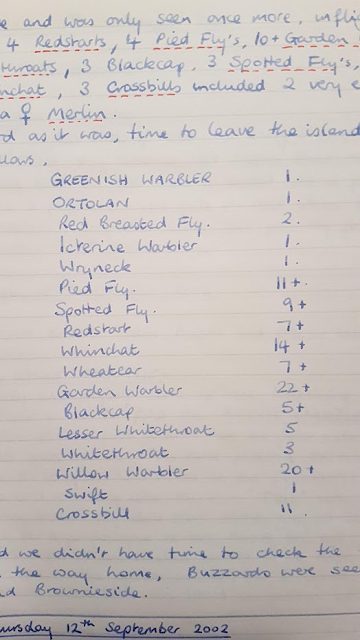 e and was only seen once more, in flig
4 Redstarts, 4 Pied Fly's, 10+ Garden
throats, 3 Blackcap, 3 Spotted Fly's,
nchat, 3 Crossbills included 2 very e
a ♀ Merlin.
rd as it was, time to leave the island
llows.
GREENISH WARBLER 1.
ORTOLAN 1.
Red Breasted Fly. 2.
Icterine Warbler 1.
Wryneck 1.
Pied Fly. 11+.
Spotted Fly. 9+
Redstart 7+
Whinchat 14+
Wheatear 7+
Garden Warbler 22+
Blackcap 5+
Lesser Whitethroat 5
Whitethroat 3
Willow Warbler 20+
Swift 1
Crossbill 11.
d we didn't have time to check the
the way home, Buzzards were see
nd Brownieside.
hursday 12th September 2002